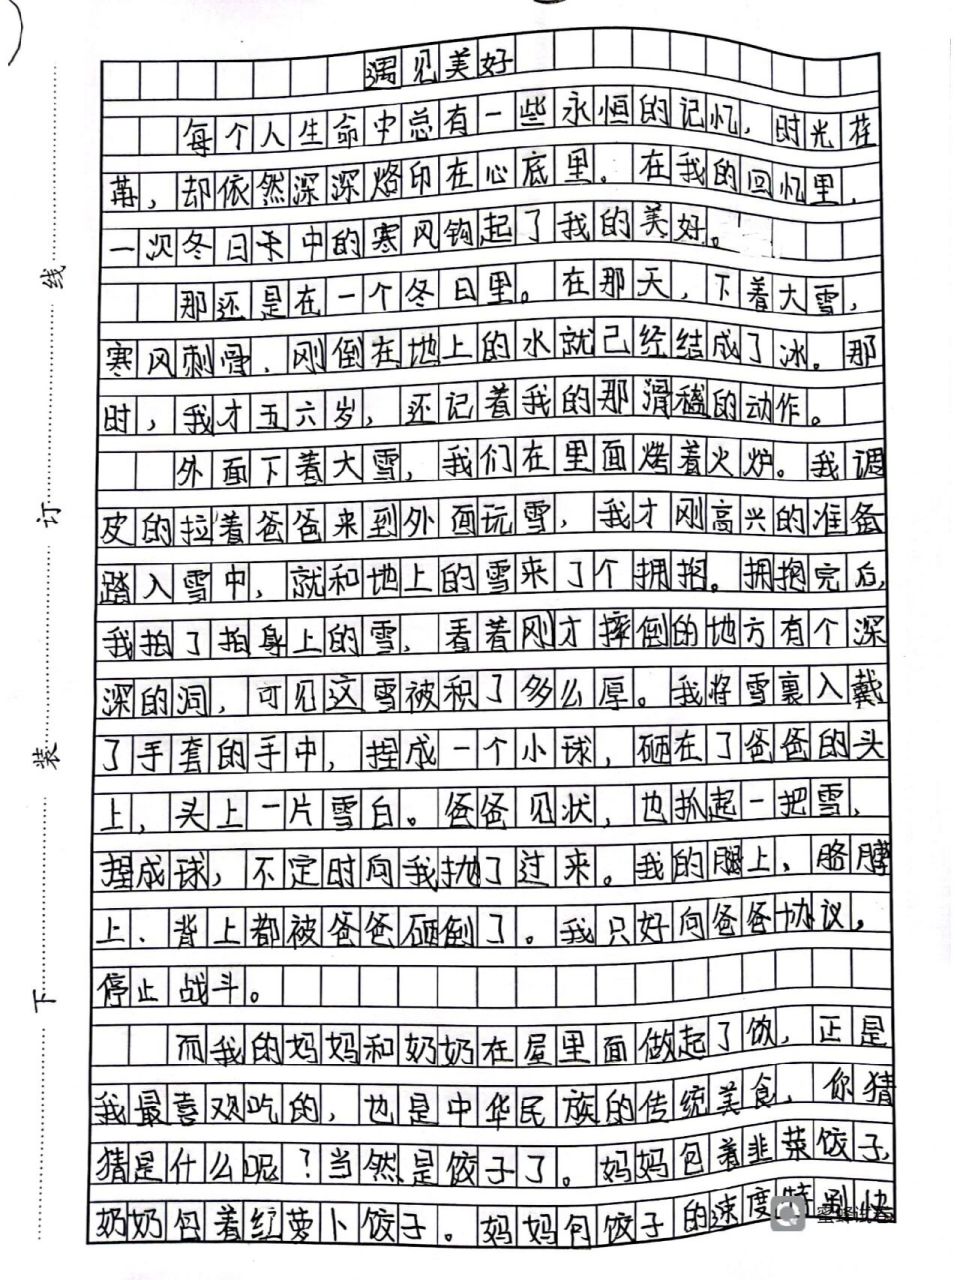 遇见美好
每个人生命中总有一些永恒的记忆，时光荏
苒，却依然深深烙印在心底里。在我的回忆里，
一次冬日天中的寒风钩起了我的美好。
那还是在一个冬日里。在那天，下着大雪，
寒风刺骨，刚倒在地上的水就已经结成了冰。那
时，我才五六岁，还记着我的那滑稽的动作。
外面下着大雪，我们在里面烤着火炉。我调
皮的拉着爸爸来到外面玩雪，我才刚高兴的准备
踏入雪中，就和地上的雪来了个拥抱。拥抱完后，
我拍了拍身上的雪，看着刚才摔倒的地方有个深
深的洞，可见这雪被积了多么厚。我将雪裹入戴
了手套的手中，捏成一个小球，砸在了爸爸的头
上，头上一片雪白。爸爸见状，也抓起一把雪，
捏成球，不定时向我抛了过来。我的腿上、胳膊
上、背上都被爸爸砸倒了。我只好向爸爸协议，
停止战斗。
而我的妈妈和奶奶在屋里面做起了饭，正是
我最喜欢吃的，也是中华民族的传统美食，你猜
猜是什么呢？当然是饺子了。妈妈包着韭菜饺子，
奶奶包着红萝卜饺子。妈妈包饺子的速度特别快
蜜蜂试卷
线
订
装
下